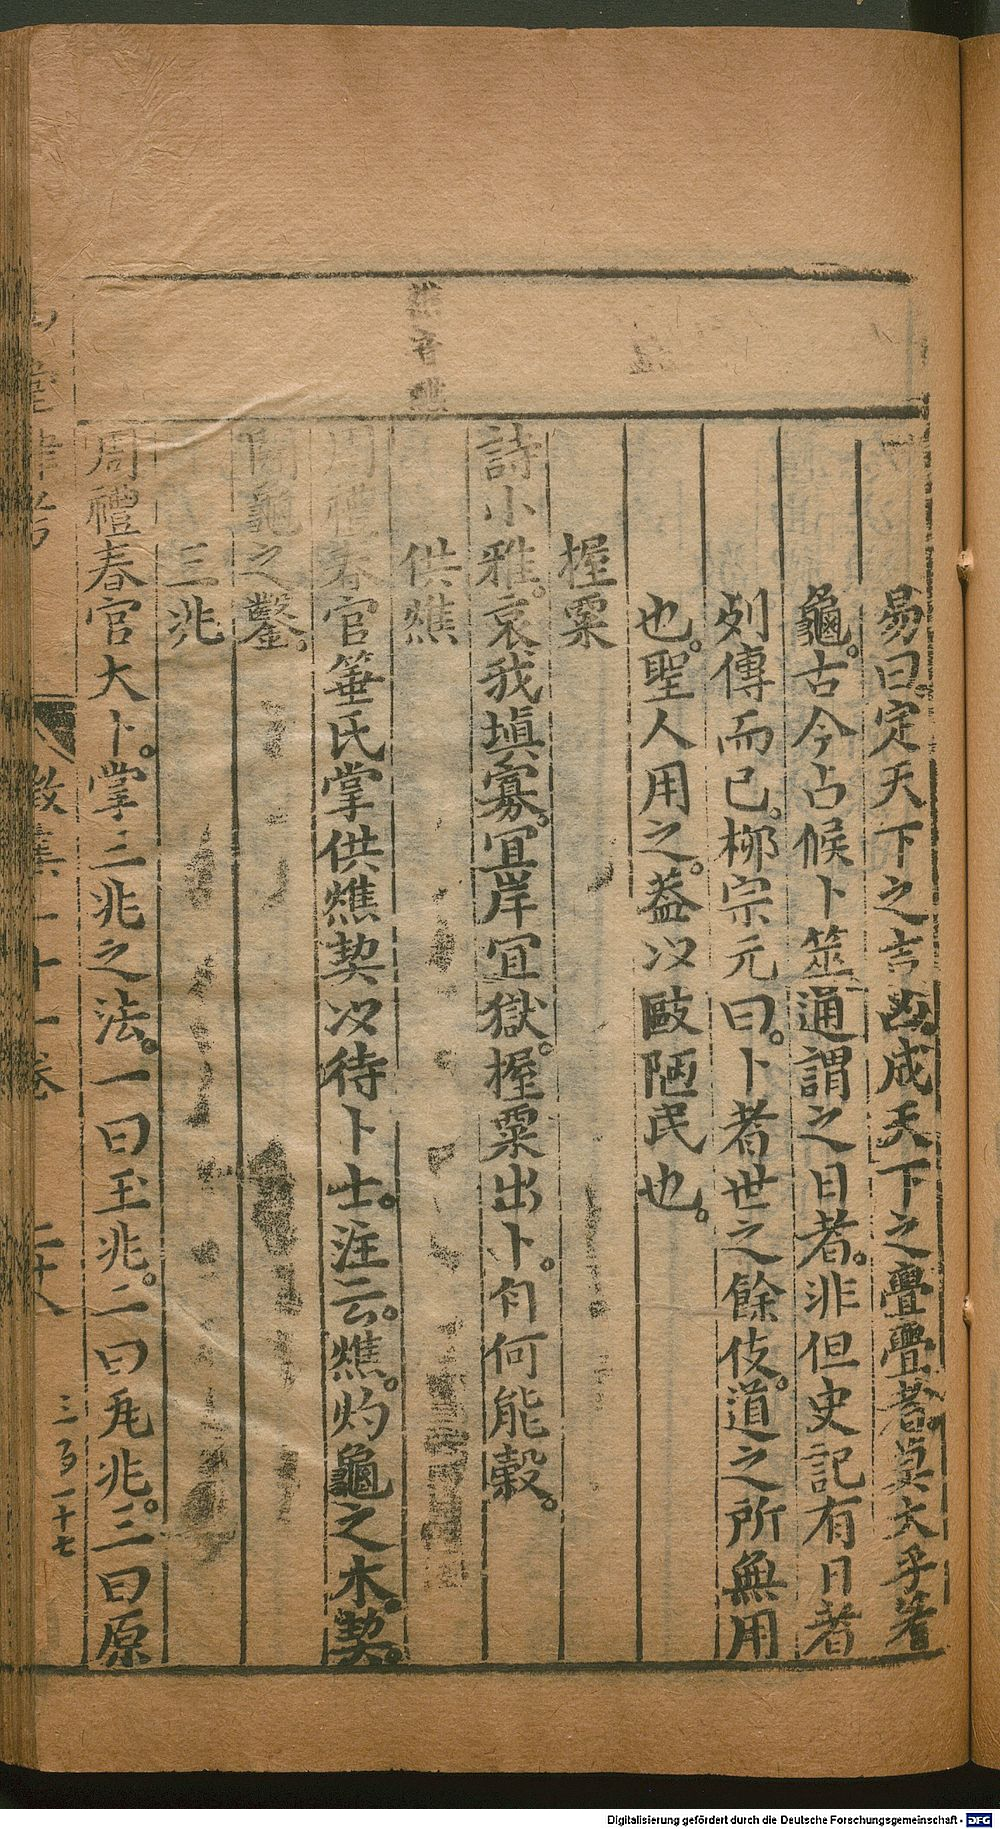 燋音醮
易曰。定天下之吉凶。成天下之亹亹者。莫大乎蓍
龜。古今占候卜筮。通謂之日者。非但史記有日者
列傳而已。柳宗元曰。卜者世之餘伎。道之所無用
也。聖人用之。葢以敺陋民也。
握粟
詩小雅。哀我塡寡。宜岸宜獄。握粟出卜。自何能穀。
供燋
周禮春官。菙氏掌供燋契以待卜士。注云。燋。灼龜之木。契。
開龜之鑿。
三兆
周禮春官大卜。掌三兆之法。一曰玉兆。二曰瓦兆。三曰原
山堂肆考
徵集二十一卷
二十八
三百十七
Digitalisierung gefördert durch die Deutsche Forschungsgemeinschaft - DFG